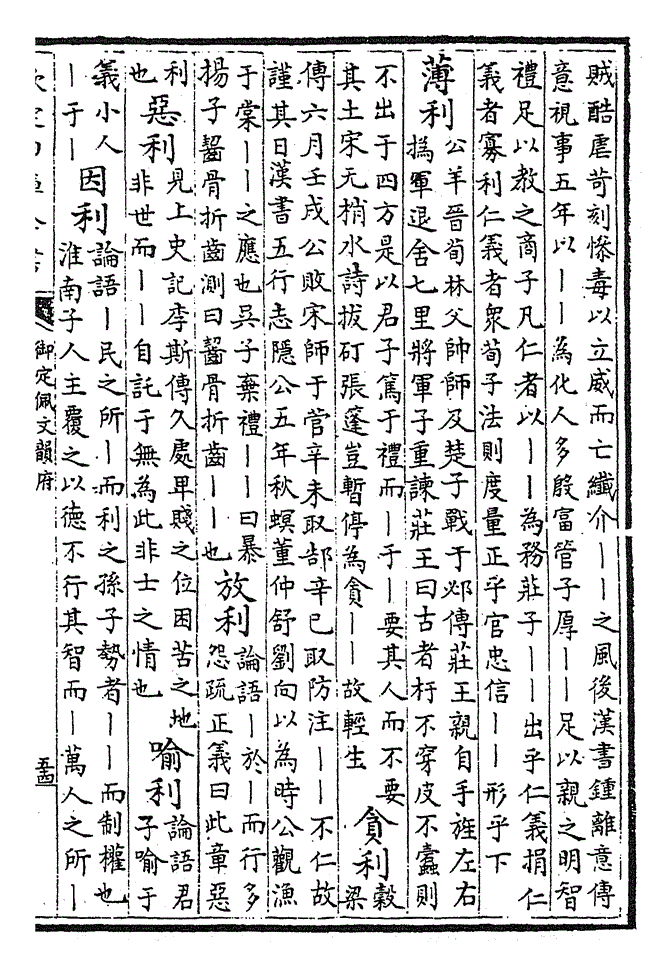 賊酷虐苛刻慘毒以立威而亡纖介丨丨之風後漢書鍾離意傳
意視事五年以丨丨為化人多殷富管子厚丨丨足以親之明智
禮足以教之商子凡仁者以丨丨為務莊子丨丨出乎仁義捐仁
義者寡利仁義者衆荀子法則度量正乎官忠信丨丨形乎下
薄利
公羊晉荀林父帥師及楚子戰于邲傳莊王親自手旌左右
撝軍退舍七里將軍子重諫莊王曰古者杅不穿皮不蠹則
不出于四方是以君子篤于禮而丨于丨要其人而不要
其土宋元梢水詩拔矴張蓬豈暫停為貪丨丨故輕生
貪利
穀
梁
傳六月壬戌公敗宋師于菅辛未取郜辛巳取防注丨丨不仁故
謹其日漢書五行志隱公五年秋螟董仲舒劉向以為時公觀漁
于棠丨丨之應也吳子棄禮丨丨曰暴
揚子齧骨折齒測曰齧骨折齒丨丨也
放利
論語丨於丨而行多
怨疏正義曰此章惡
利
也
惡利
見上史記李斯傳久處卑賤之位困苦之地
非世而丨丨自託于無為此非士之情也
喻利
論語君
子喻于
義小人
丨于丨
因利
論語丨民之所丨而利之孫子勢者丨丨而制權也
淮南子人主覆之以德不行其智而丨萬人之所丨
御定佩文韻府